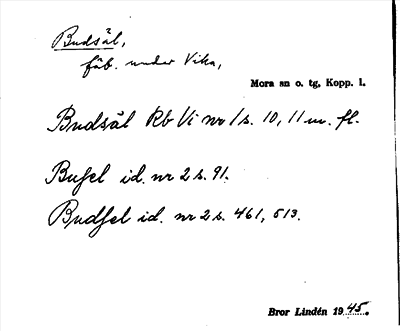 Budsäl,
fäb. under Vika,
Mora sn o. tg, Kopp. l.
Budsäl Rb Vi nr 1 s. 10, 11 m. fl.
Bufel id. nr 2 s. 91.
Budfel id. nr 2 s. 461, 513.
Bror Lindén 1945.